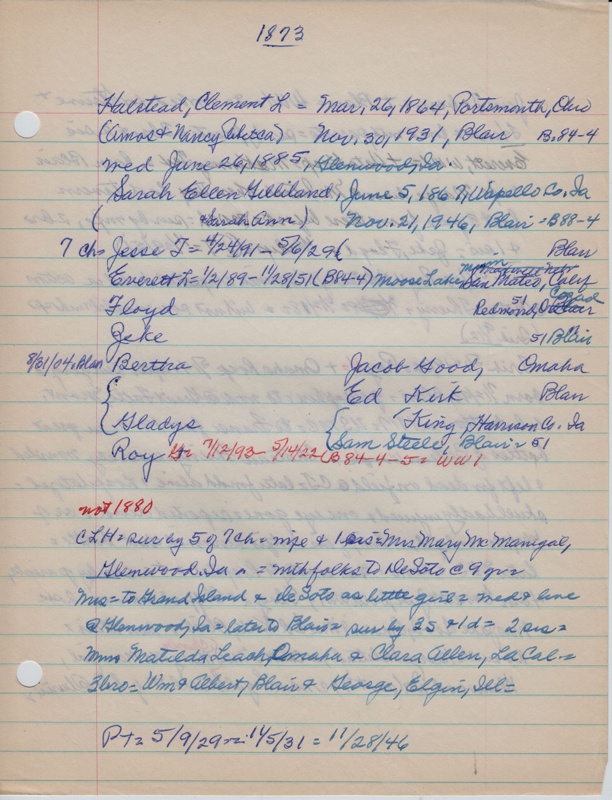 1873
Halstead, Clement L = Mar, 26, 1864, Portsmouth, Ohio
(Amos & Nancy Rebecca) Nov. 30, 1931, Blair B-84-4
wed June 26, 1885, Glenwood, Ia.
Sarah Ellen Gilliland, June 5, 1867, Wapello Co. Ia
( Sarah Ann) Nov. 21, 1946, Blair = B88-4
7 ch= Jesse T = 4/24/91 - 5/6/29( Blair
Everett L = 1/2/89 - 11/28/51 (B84-4) Moose Lake, San Mateo, Calif
Floyd Redmond, 51
Zeke 51 Blair
8/31/04 = Blair Bertha Jacob Good, Omaha
{ Ed Kirk Blair
Gladys { King, Harrison Co. Ia
Sam Steele, Blair = 51
Roy = 7/12/93 - 5/14/22 (B84-4-5 = WW1
not 1880
CLH = sur by 5 of 7 ch = wife & 1 sis = Mrs Mary McManigal,
Glenwood, Ia = with folks to DeSoto @ 9 yr =
Mrs = to Grand Island & DeSoto as little girl = wed & live
@ Glenwood, Ia = later to Blair = sur by 3s & 1d = 2 sis =
Mrs Matilda Leach, Omaha & Clara Allen, La Cal =
3 bro = Wm & Albert, Blair & George, Elgin, Ill =
P-T = 5/9/29 = 11/5/31 = 11/28/46